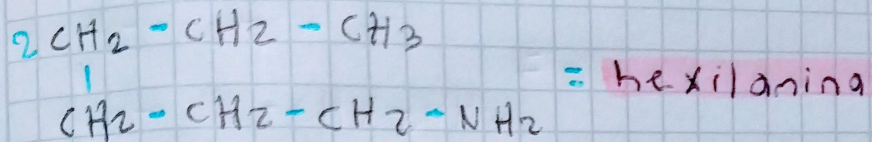 2 CH2 - CH2 - CH3
|
CH2 - CH2 - CH2 - NH2 = hexilanina